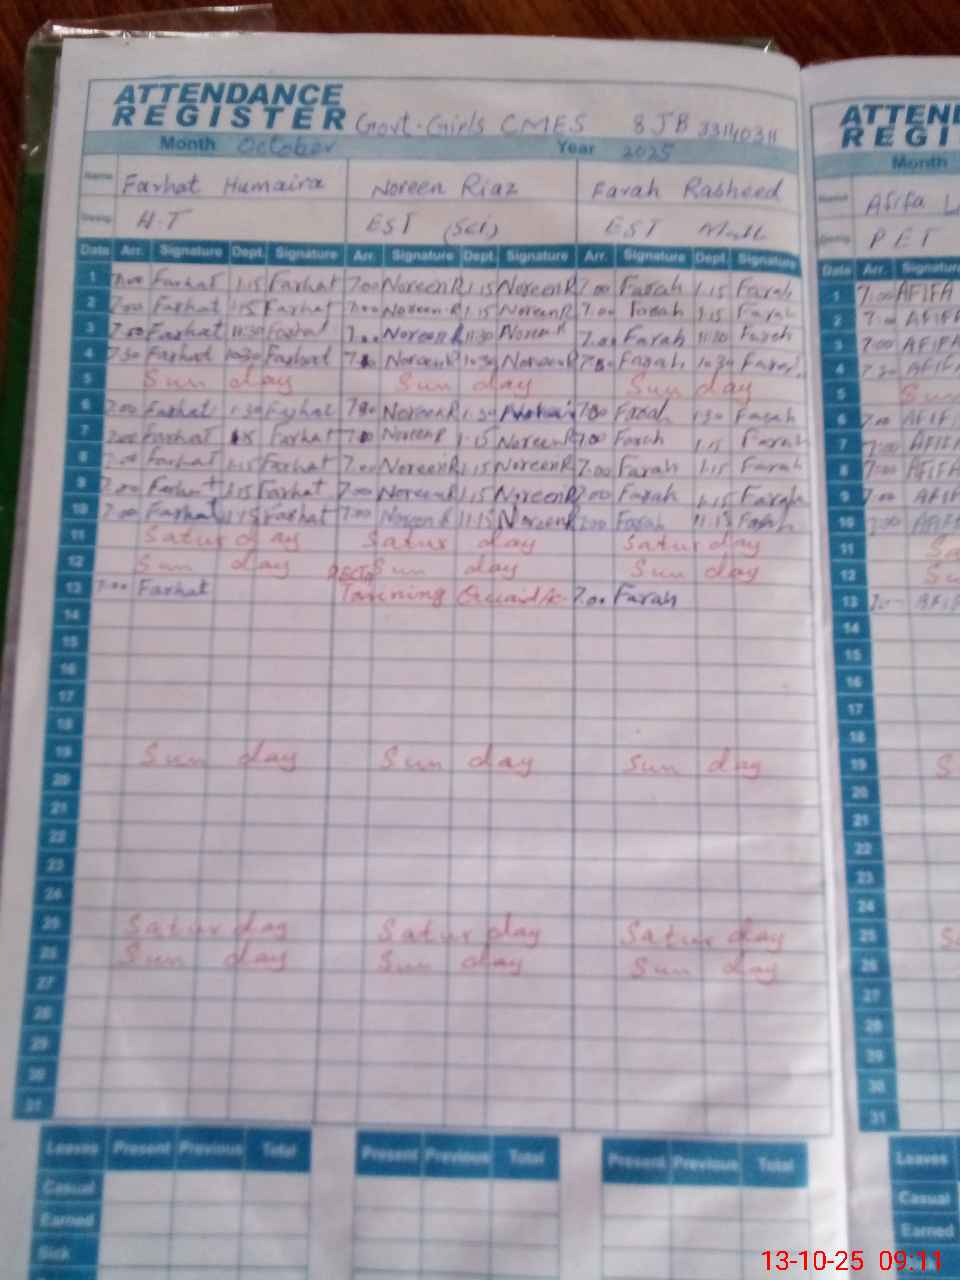 ATTENDANCE
REGISTER Govt. Girls CMES 8 JB 33140311
Month October Year 2025
Name Farhat Humaira Noreen Riaz Farah Rasheed
H.T EST (Sci) EST Math
Date Arr. Signature Dept. Signature Arr. Signature Dept. Signature Arr. Signature Dept. Signature
1 7.00 Farhat 1.15 Farhat 7.00 Noreen R 1.15 Noreen R 7.00 Farah 1.15 Farah
2 7.00 Farhat 1.15 Farhat 7.00 Noreen R 1.15 Noreen R 7.00 Farah 1.15 Farah
3 7.00 Farhat 11:30 Farhat 7.00 Noreen R 11:30 Noreen R 7.00 Farah 11:30 Farah
4 7.30 Farhat 10:30 Farhat Noreen R 10:30 Noreen R Farah 10:30 Farah
5 Sun day Sun day Sun day
6 7.00 Farhat 1.30 Farhat 7.00 Noreen R 1.30 7.00 Farah 1.30 Farah
7 7.00 Farhat Farhat Noreen R 1.15 Noreen R 7.00 Farah 1.15 Farah
8 7.00 Farhat 1.15 Farhat 7.00 Noreen R 1.15 Noreen R 7.00 Farah 1.15 Farah
9 7.00 Farhat 1.15 Farhat 7.00 Noreen R 1.15 Noreen R 7.00 Farah 1.15 Farah
10 7.00 Farhat 11:15 Farhat 7.00 Noreen R 11:15 Noreen R 7.00 Farah 11:15 Farah
11 Satur day Satur day Satur day
12 Sun day Sun day Sun day
13 7.00 Farhat 7.00 Farah
14
15
16
17
18
19 Sun day Sun day Sun day
20
21
22
23
24
25 Satur day Satur day Satur day
26 Sun day Sun day Sun day
27
28
29
30
31
Leaves Present Previous Total Present Previous Total Present Previous Total
Casual
Earned
Sick
ATTEN
REGI
Month
Name Afifa
PET
Date Arr. Signatur
1 7.00 AFIFA
2 7.00 AFIF
3 7.00 AFIF
4 7.30 AFIF
5
6 7.00 AFIF
7 7.00 AFIF
8 7.00 AFIF
9 7.00 AFIF
10 7.00 AFIF
11 Sa
12 Su
13 AFIF
14
15
16
17
18
19 S
20
21
22
23
24
25 Sa
26
27
28
29
30
31
Leaves
Casual
Earned
13-10-25 09:11